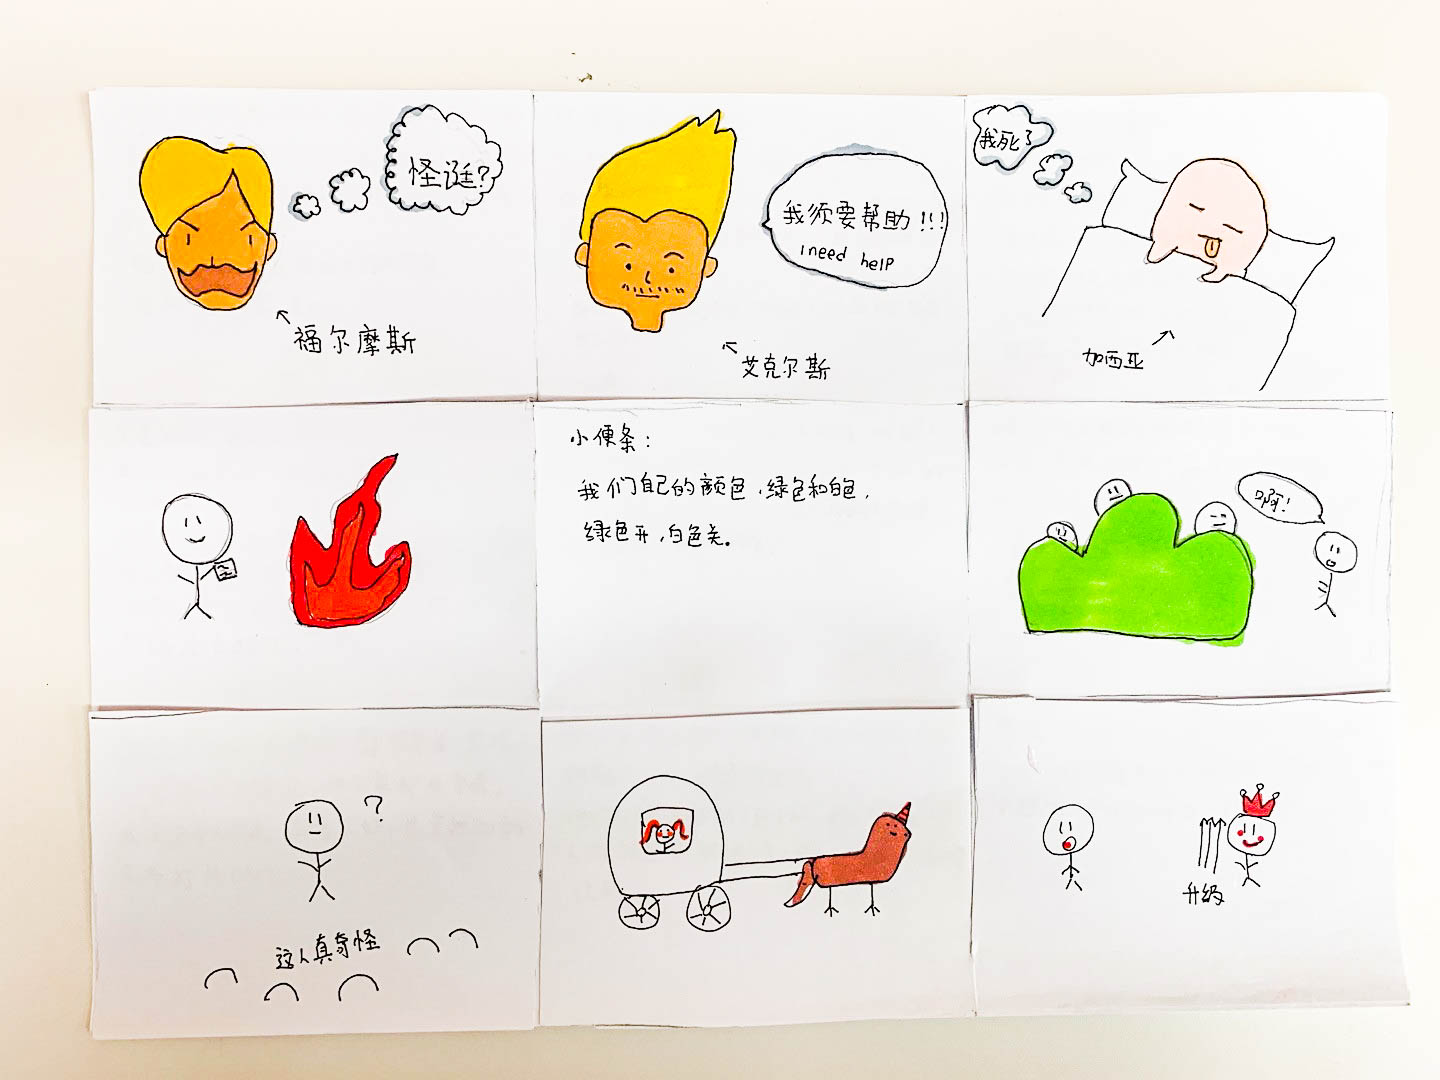 怪诞?
福尔摩斯
我须要帮助!!!
i need help
艾克尔斯
我死了
加西亚
小便条:
我们自己的颜色,绿色和白色,
绿色开,白色关。
啊!
?
这人真奇怪
升级